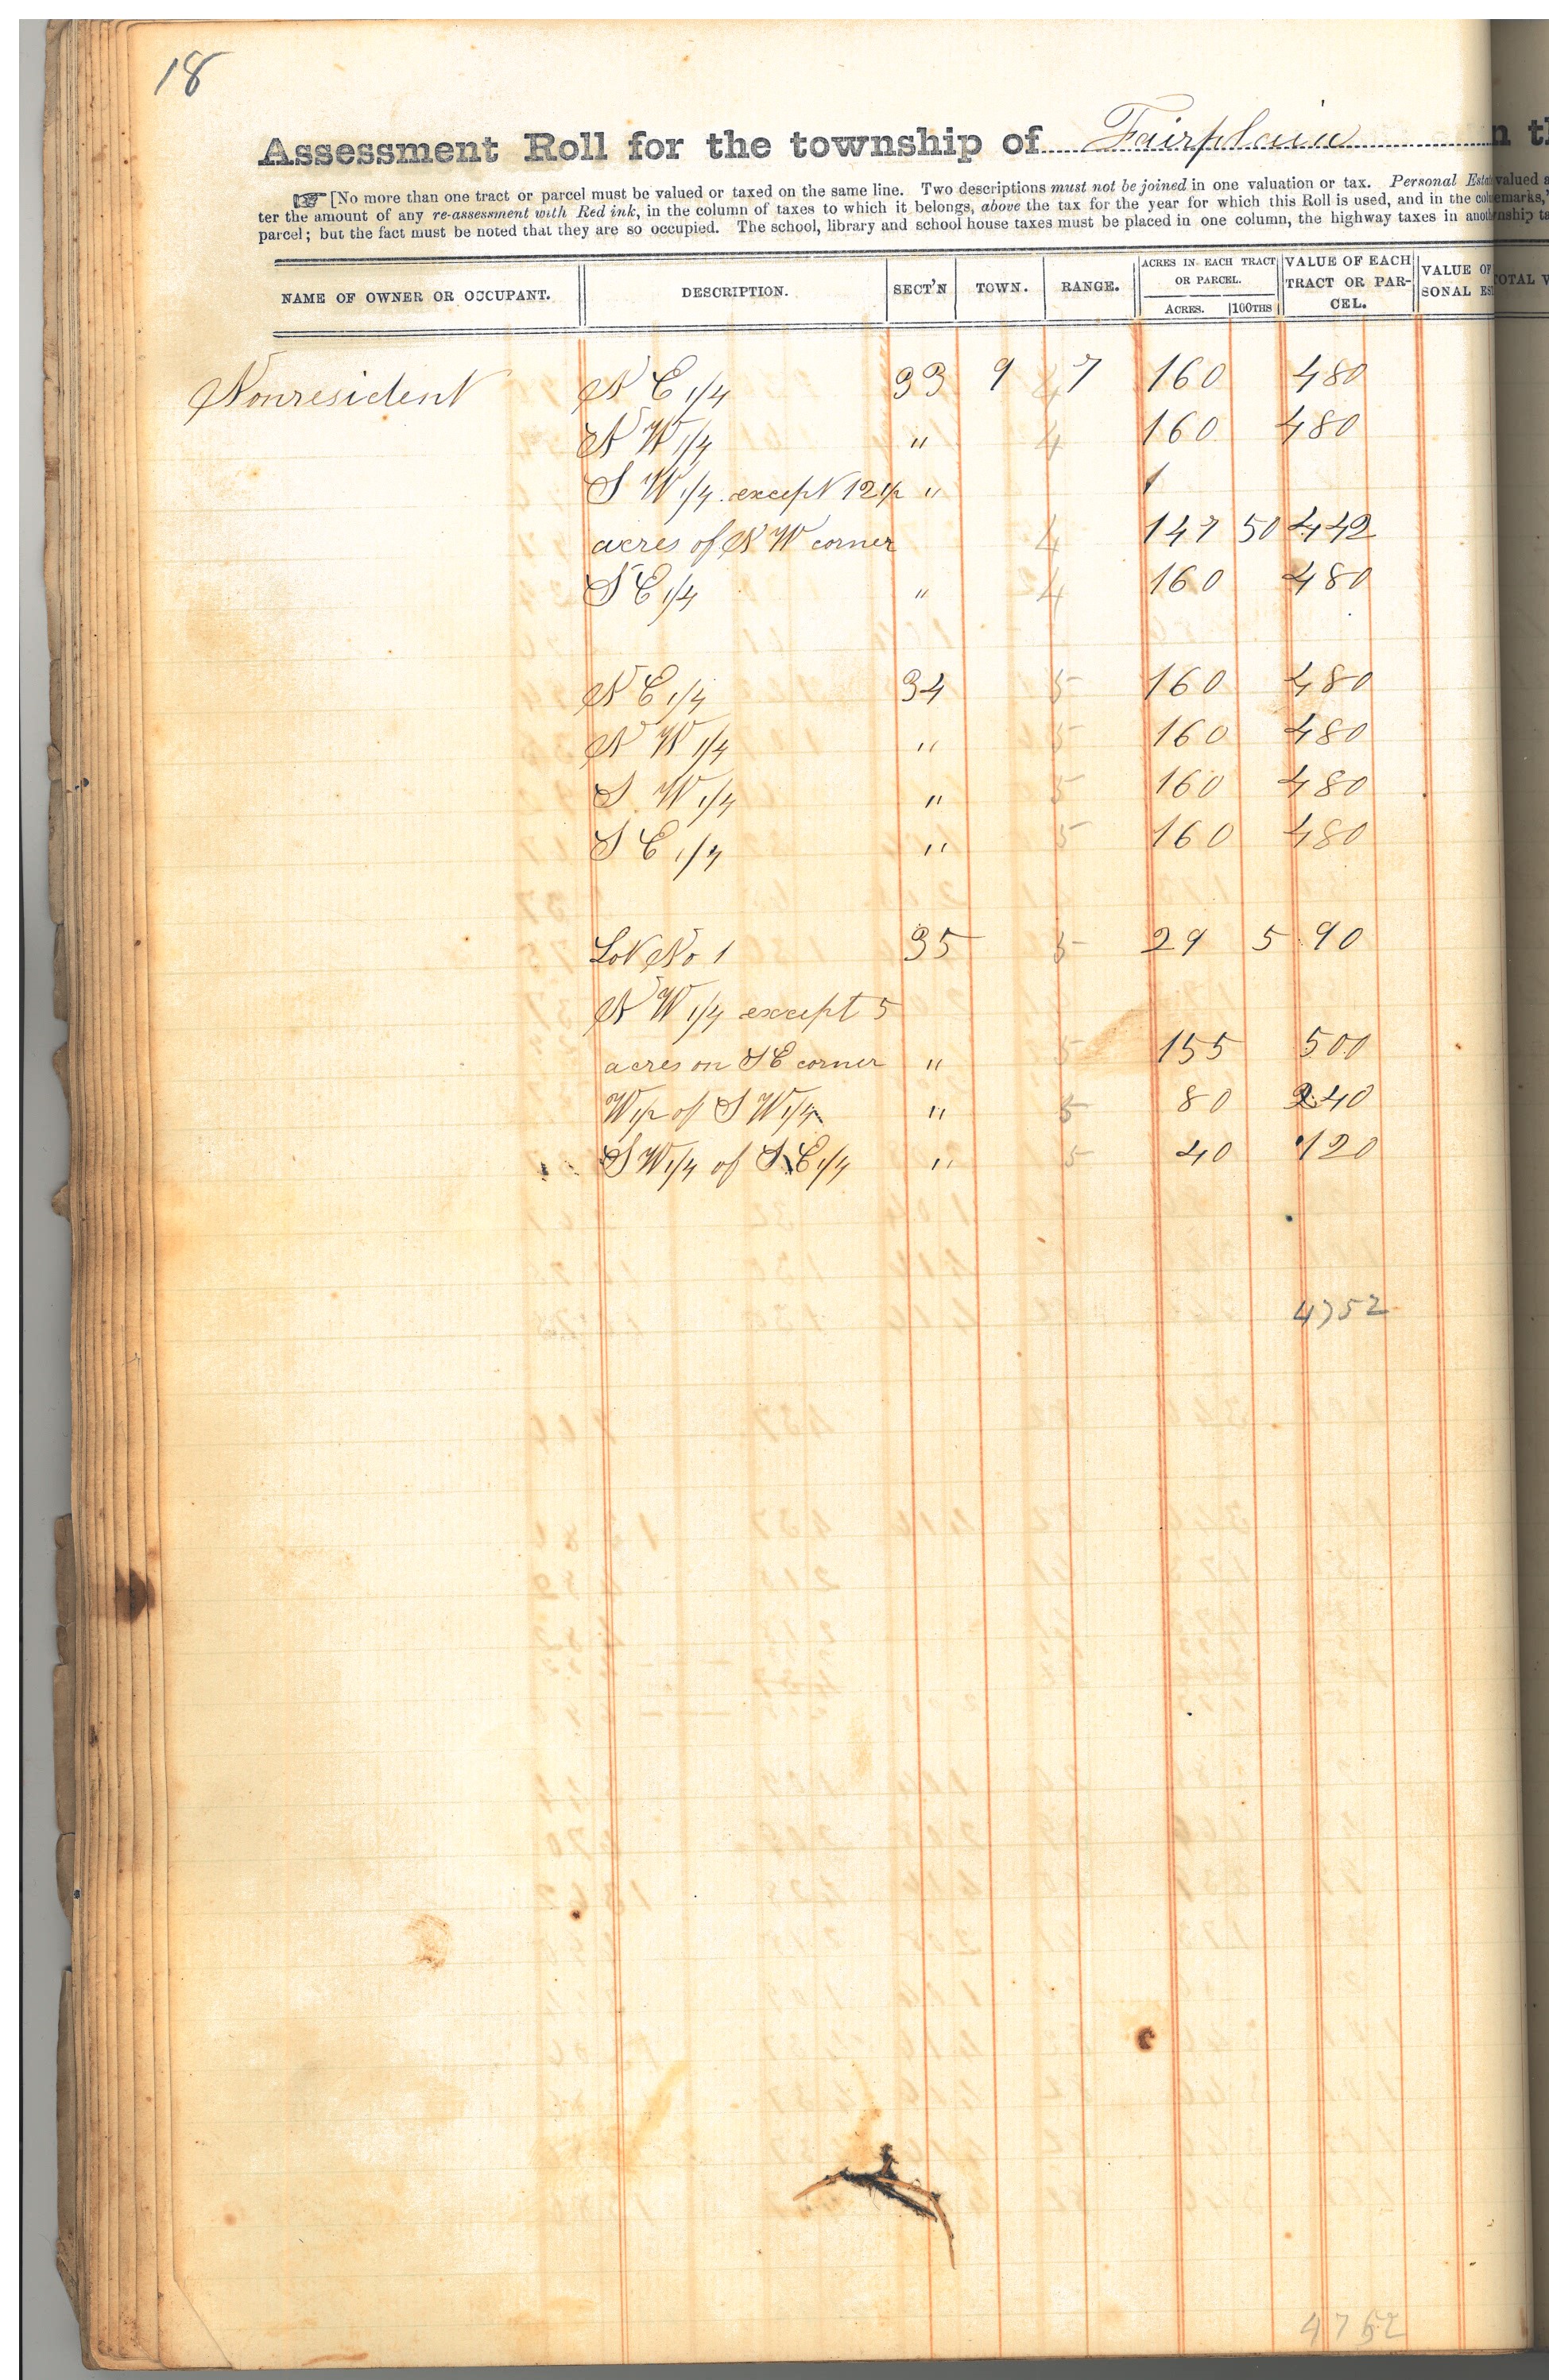 18
Assessment Roll for the township of Fairplain
[No more than one tract or parcel must be valued or taxed on the same line. Two descriptions must not be joined in one valuation or tax. Personal Estat valued a
ter the amount of any re-assessment with Red ink, in the column of taxes to which it belongs, above the tax for the year for which this Roll is used, and in the col emarks,
parcel; but the fact must be noted that they are so occupied. The school, library and school house taxes must be placed in one column, the highway taxes in anoth nship ta
NAME OF OWNER OR OCCUPANT. DESCRIPTION. SECT'N TOWN. RANGE. ACRES IN EACH TRACT OR PARCEL. ACRES. 100THS VALUE OF EACH TRACT OR PARCEL. VALUE OF SONAL ES OTAL V
Nonresident N E 1/4 33 9 7 160 480
N W 1/4 " 4 160 480
S W 1/4 except 12 1/2 " 1
acres of N W corner 4 147 50 442
S E 1/4 " 4 160 480
N E 1/4 34 5 160 480
N W 1/4 " 5 160 480
S W 1/4 " 5 160 480
S E 1/4 " 5 160 480
Lot No 1 35 5 29 5 90
N W 1/4 except 5
acres on S E corner " 5 155 500
W 1/2 of S W 1/4 " 5 80 240
S W 1/4 of S E 1/4 " 5 40 120
4752
4752